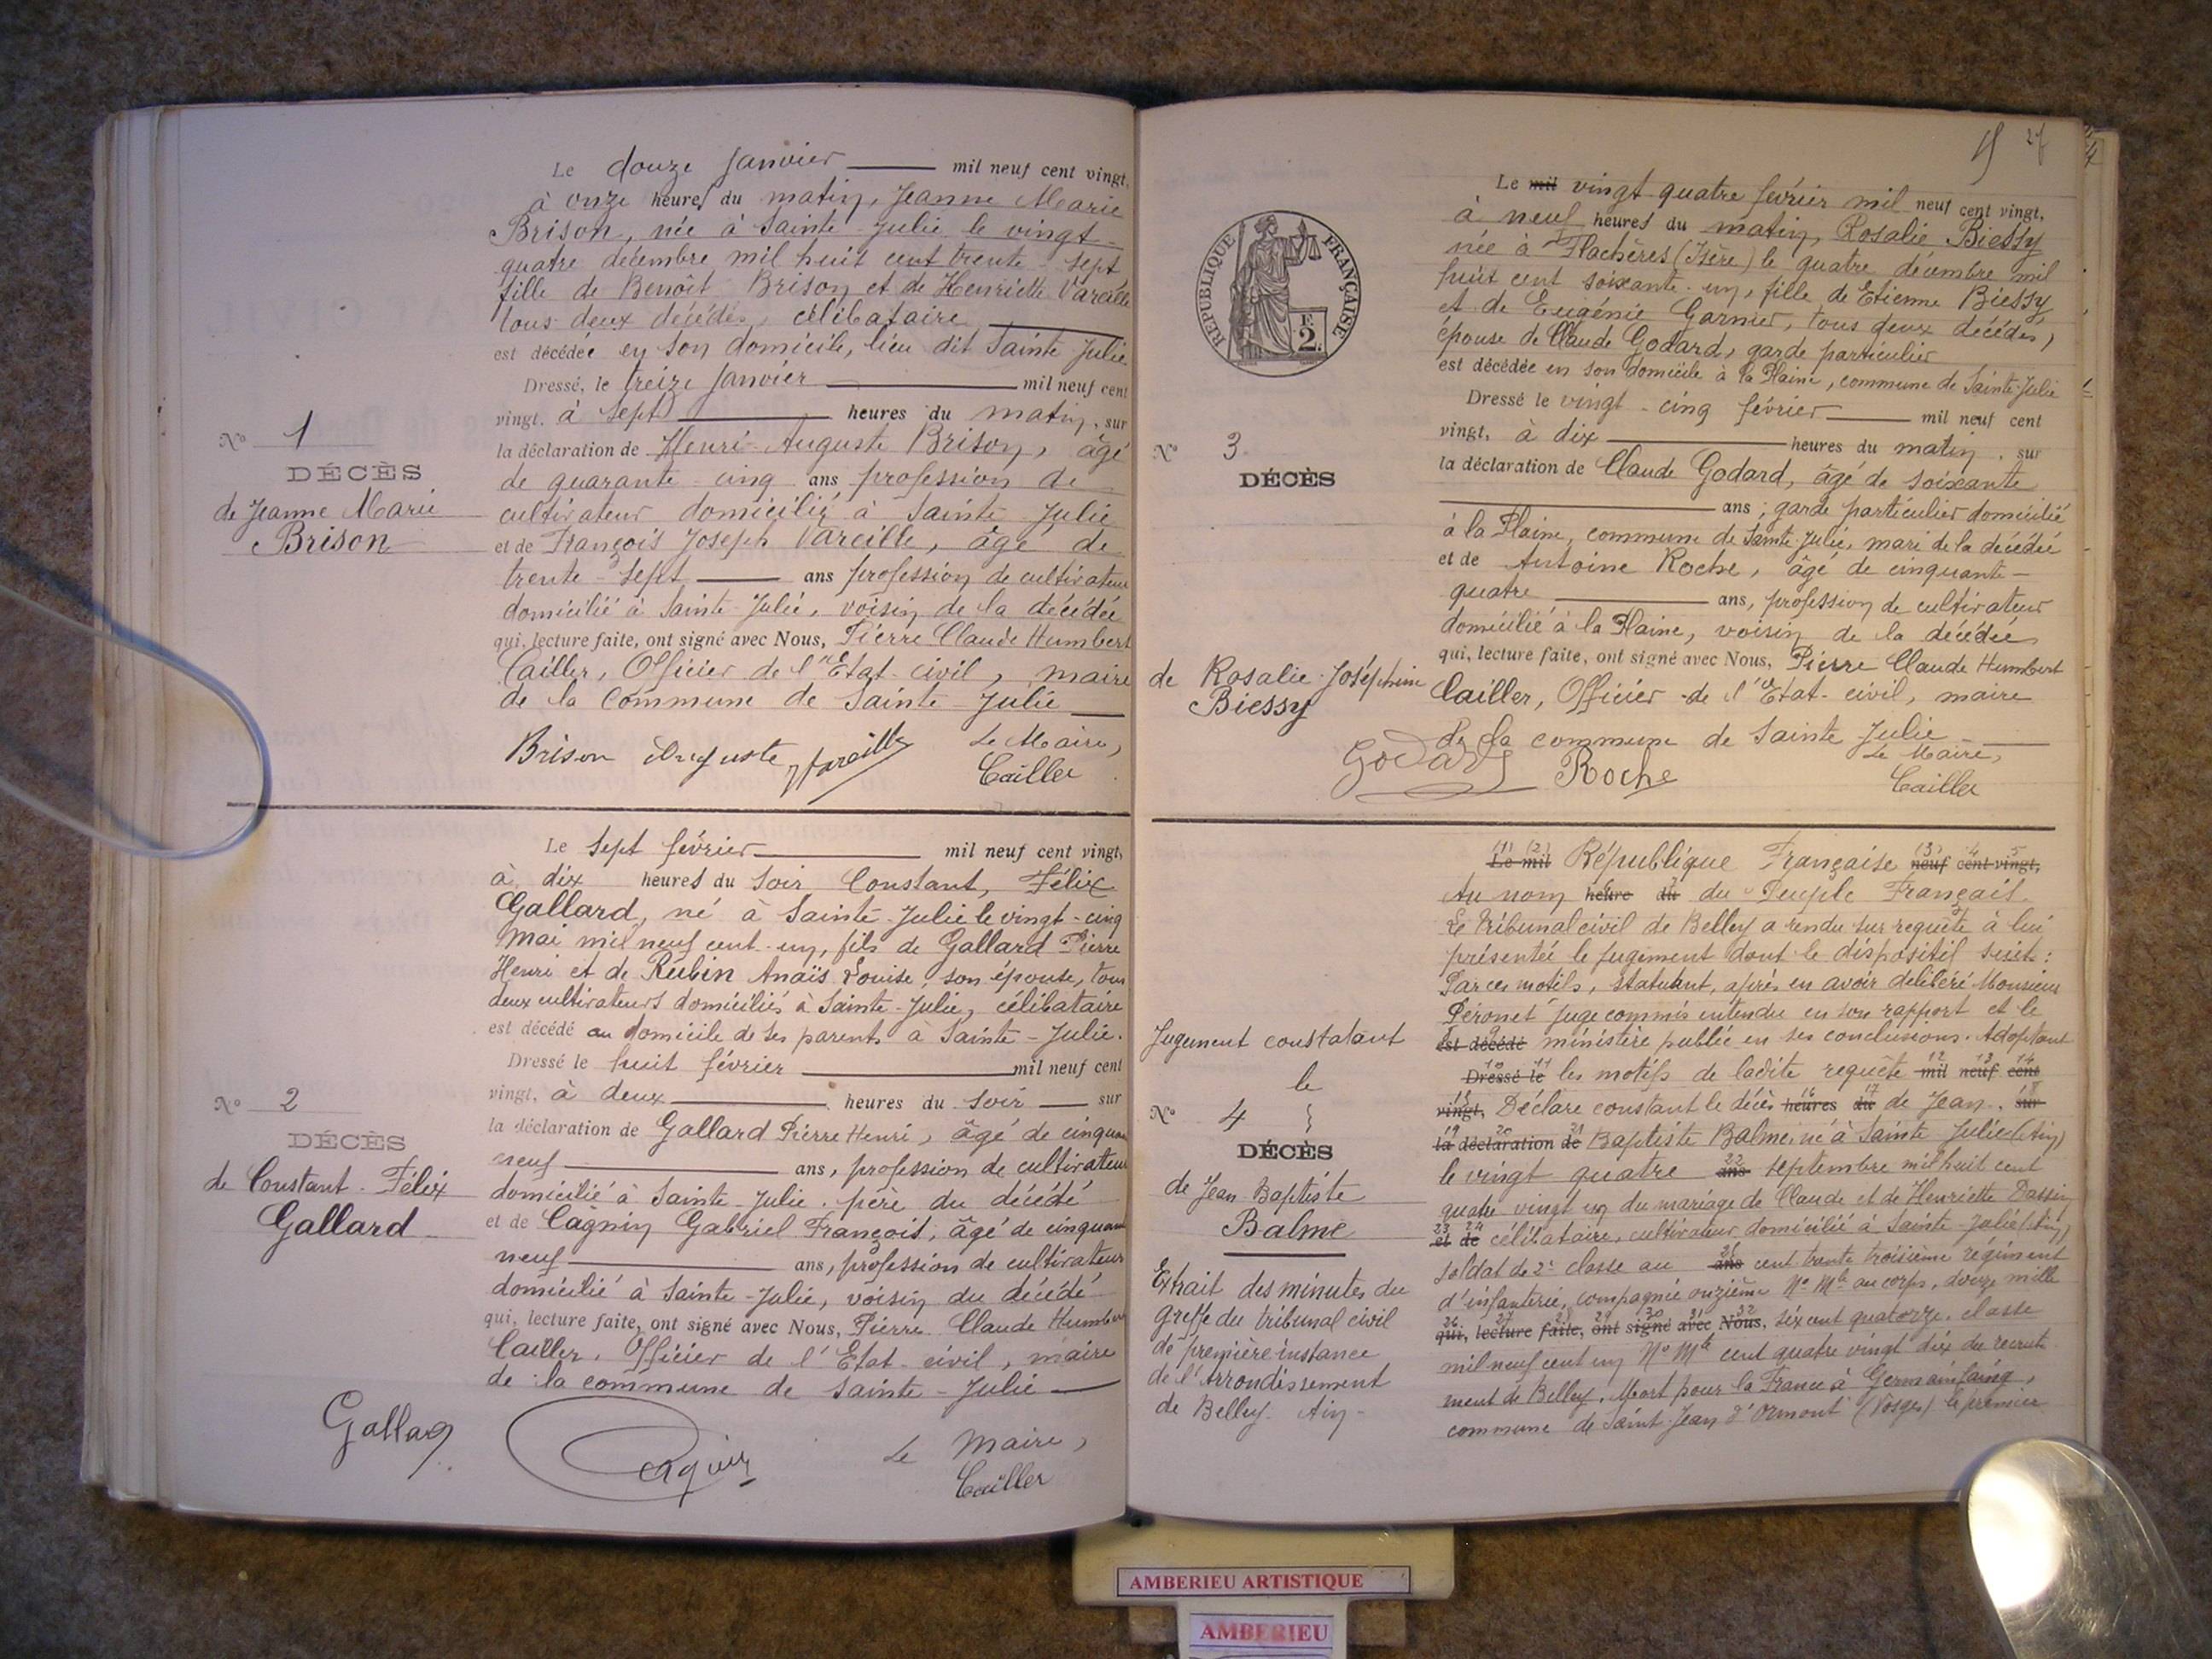 Le douze janvier mil neuf cent vingt,
à onze heures du matin, Jeanne Marie
Brison, née à Sainte-Julie le vingt-
quatre décembre mil huit cent trente-sept
fille de Benoît Brison et de Henriette Vareille
tous deux décédés, célibataire
est décédée en son domicile, lieu dit Sainte Julie
Dressé, le treize janvier mil neuf cent
vingt, à sept heures du matin, sur
la déclaration de Henri-Auguste Brison, âgé
de quarante-cinq ans profession de
cultivateur domicilié à Sainte-Julie
et de François Joseph Vareille, âgé de
trente-sept ans profession de cultivateur
domicilié à Sainte-Julie, voisin de la décédée
qui, lecture faite, ont signé avec Nous, Pierre Claude Humbert
Cailler, Officier de l'Etat-civil, maire
de la Commune de Sainte-Julie
Brison Auguste Vareille Le Maire,
Cailler
N° 1
DÉCÈS
de Jeanne Marie
Brison
Le sept février mil neuf cent vingt,
à dix heures du soir Constant, Félix
Gallard, né à Sainte-Julie le vingt-cinq
mai mil neuf cent-un, fils de Gallard Pierre
Henri et de Rubin Anaïs Louise, son épouse, tous
deux cultivateurs domiciliés à Sainte-Julie, célibataire
est décédé au domicile de ses parents à Sainte-Julie.
Dressé le huit février mil neuf cent
vingt, à deux heures du soir sur
la déclaration de Gallard Pierre Henri, âgé de cinquan
neuf ans, profession de cultivateur
domicilié à Sainte-Julie, père du décédé
et de Cagnin Gabriel François, âgé de cinquan
neuf ans, profession de cultivateur
domicilié à Sainte-Julie, voisin du décédé
qui, lecture faite, ont signé avec Nous, Pierre Claude Humbert
Cailler, Officier de l'Etat-civil, maire
de la commune de Sainte-Julie
Gallard Cagnin Le Maire,
Cailler
N° 2
DÉCÈS
de Constant-Félix
Gallard
27
RÉPUBLIQUE FRANÇAISE
F. 2.
Le mil vingt-quatre février mil neuf cent vingt,
à neuf heures du matin, Rosalie Biessy
née à Flachères (Isère) le quatre décembre mil
huit cent soixante-un, fille de Etienne Biessy
et de Eugénie Garnier, tous deux décédés,
épouse de Claude Godard, garde particulier
est décédée en son domicile à la Plaine, commune de Sainte-Julie
Dressé le vingt-cinq février mil neuf cent
vingt, à dix heures du matin, sur
la déclaration de Claude Godard, âgé de soixante
ans; garde particulier domicilié
à la Plaine, commune de Sainte-Julie, mari de la décédée
et de Antoine Roche, âgé de cinquante-
quatre ans, profession de cultivateur
domicilié à la Plaine, voisin de la décédée
qui, lecture faite, ont signé avec Nous, Pierre Claude Humbert
Cailler, Officier de l'Etat-civil, maire
de la commune de Sainte Julie
Godard Roche Le Maire,
Cailler
N° 3
DÉCÈS
de Rosalie-Joséphine
Biessy
(1) (2) (3) 4 5
Le mil République Française neuf cent vingt,
Au nom heure du du Peuple Français.
Le tribunal civil de Belley a rendu sur requête à lui
présentée le jugement dont le dispositif suit:
Par ces motifs, Statuant, après en avoir délibéré Monsieur
Péronet juge commis entendu en son rapport et le
est décédé ministère public en ses conclusions. Adoptant
Dressé le les motifs de ladite requête mil neuf cent
vingt, Déclare constant le décès heures du de Jean. sur
la déclaration de Baptiste Balme né à Sainte-Julie (Ain)
le vingt quatre ans septembre mil huit cent
quatre vingt un du mariage de Claude et de Henriette Dassin
et de célibataire, cultivateur domicilié à Sainte-Julie (Ain)
soldat de 2e classe au ans cent trente troisième régiment
d'infanterie, compagnie onzième N° Mle au corps, douze mille
qui, lecture faite, ont signé avec Nous, six cent quatorze, classe
mil neuf cent un N° Mle cent quatre vingt dix du recrute
ment de Belley. Mort pour la France à Germainfaing,
commune de Saint-Jean d'Ormont (Vosges) le premier
Jugement constatant
le
N° 4
DÉCÈS
de Jean-Baptiste
Balme
Extrait des minutes du
greffe du tribunal civil
de première instance
de l'Arrondissement
de Belley-Ain-
AMBERIEU ARTISTIQUE
AMBERIEU